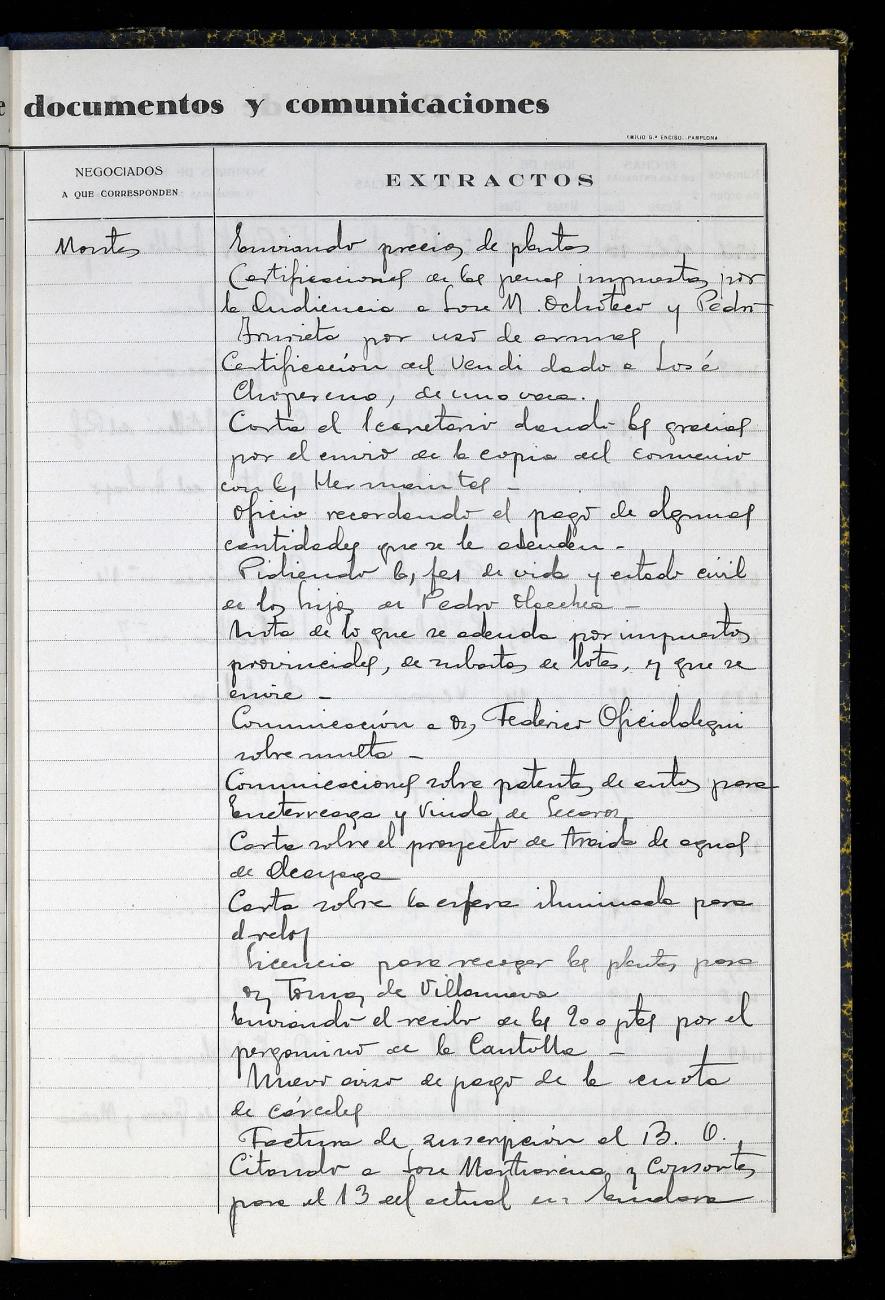 e documentos y comunicaciones
EMILIO G.ª ENCISO.-PAMPLONA
NEGOCIADOS
A QUE CORRESPONDEN
EXTRACTOS
Montes
Enviando precios de plantas
Certificaciones de las penas impuestas por
la Audiencia a Jose M. Ochoteco y Pedro
por uso de armas
Certificación del vendi dado a José
Choperena, de una vaca.
Carta al Secretario dando las gracias
por el envio de la copia del convenio
con las Hermanitas -
Oficio recordando el pago de algunas
cantidades que se le adeudan -
Pidiendo las fes de vida y estado civil
de los hijos de Pedro Olaechea -
Nota de lo que se adeuda por impuestos
provinciales, de subastas de lotes, y que se
envie -
Comunicación a Dn Federico Oficialdegui
sobre multa -
Comunicaciones sobre patentes de autos para
y Viuda de
Carta sobre el proyecto de traida de aguas
de Alcayaga
Carta sobre la esfera iluminada para
el reloj
Licencia para recoger las plantas para
Dn Tomas de Villanueva
Enviando el recibo de las 200 ptas por el
pergamino de la Cantolla -
Nuevo aviso de pago de la cuota
de cárceles
Factura de suscripción al B. O.
Citando a Jose Martiarena y Consortes
para el 13 del actual en Endara